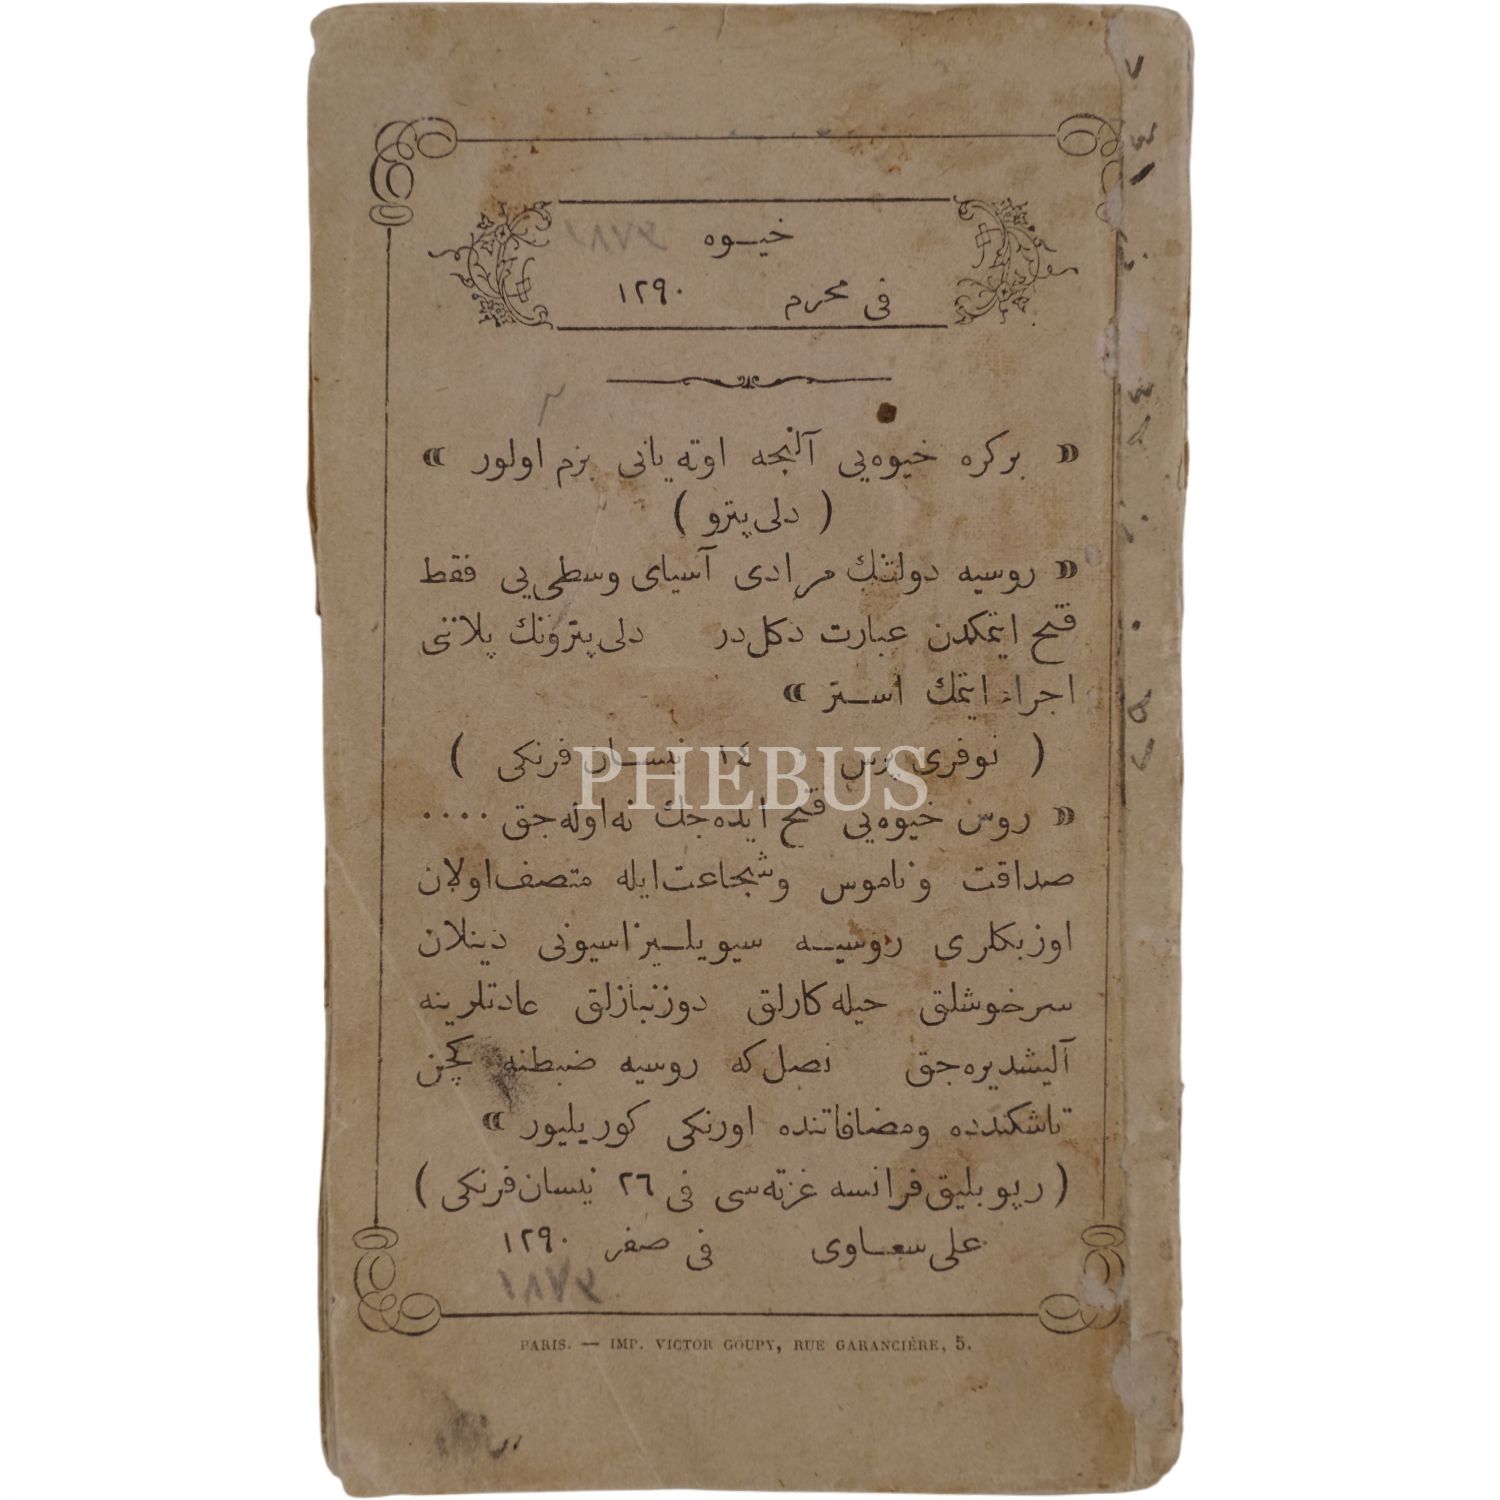 خیــوه ١٨٧٣
فی محرم ١٢٩٠
« بر کره خیوه‌یی آلنجه اوته یانی بزم اولور »
( دلی پترو )
« روسیه دولتنك مرادی آسیای وسطی‌یی فقط
فتح ایتمکدن عبارت دکل در دلی پترونك پلاننی
اجراء ایتمك استر »
( نوفری پرس ١٤ نیســان فرنکی )
« روس خیوه‌یی فتح ایده‌جك نه اوله‌جق ....
صداقت وناموس وشجاعت ایله متصف اولان
اوزبکلری روسیــه سیویلیــزاسیونی دینلان
سرخوشلق حیله کارلق دوزنبازلق عادتلرینه
آلیشدیره‌جق نصل که روسیه ضبطنه کچن
تاشکندده ومضافاتنده اورنکی کوریلیور »
( رپوبلیق فرانسه غزته‌سی فی ٢٦ نیسان فرنکی )
علی سعــاوی فی صفر ١٢٩٠
١٨٧٣
PARIS. — IMP. VICTOR GOUPY, RUE GARANCIÈRE, 5.
PHEBUS